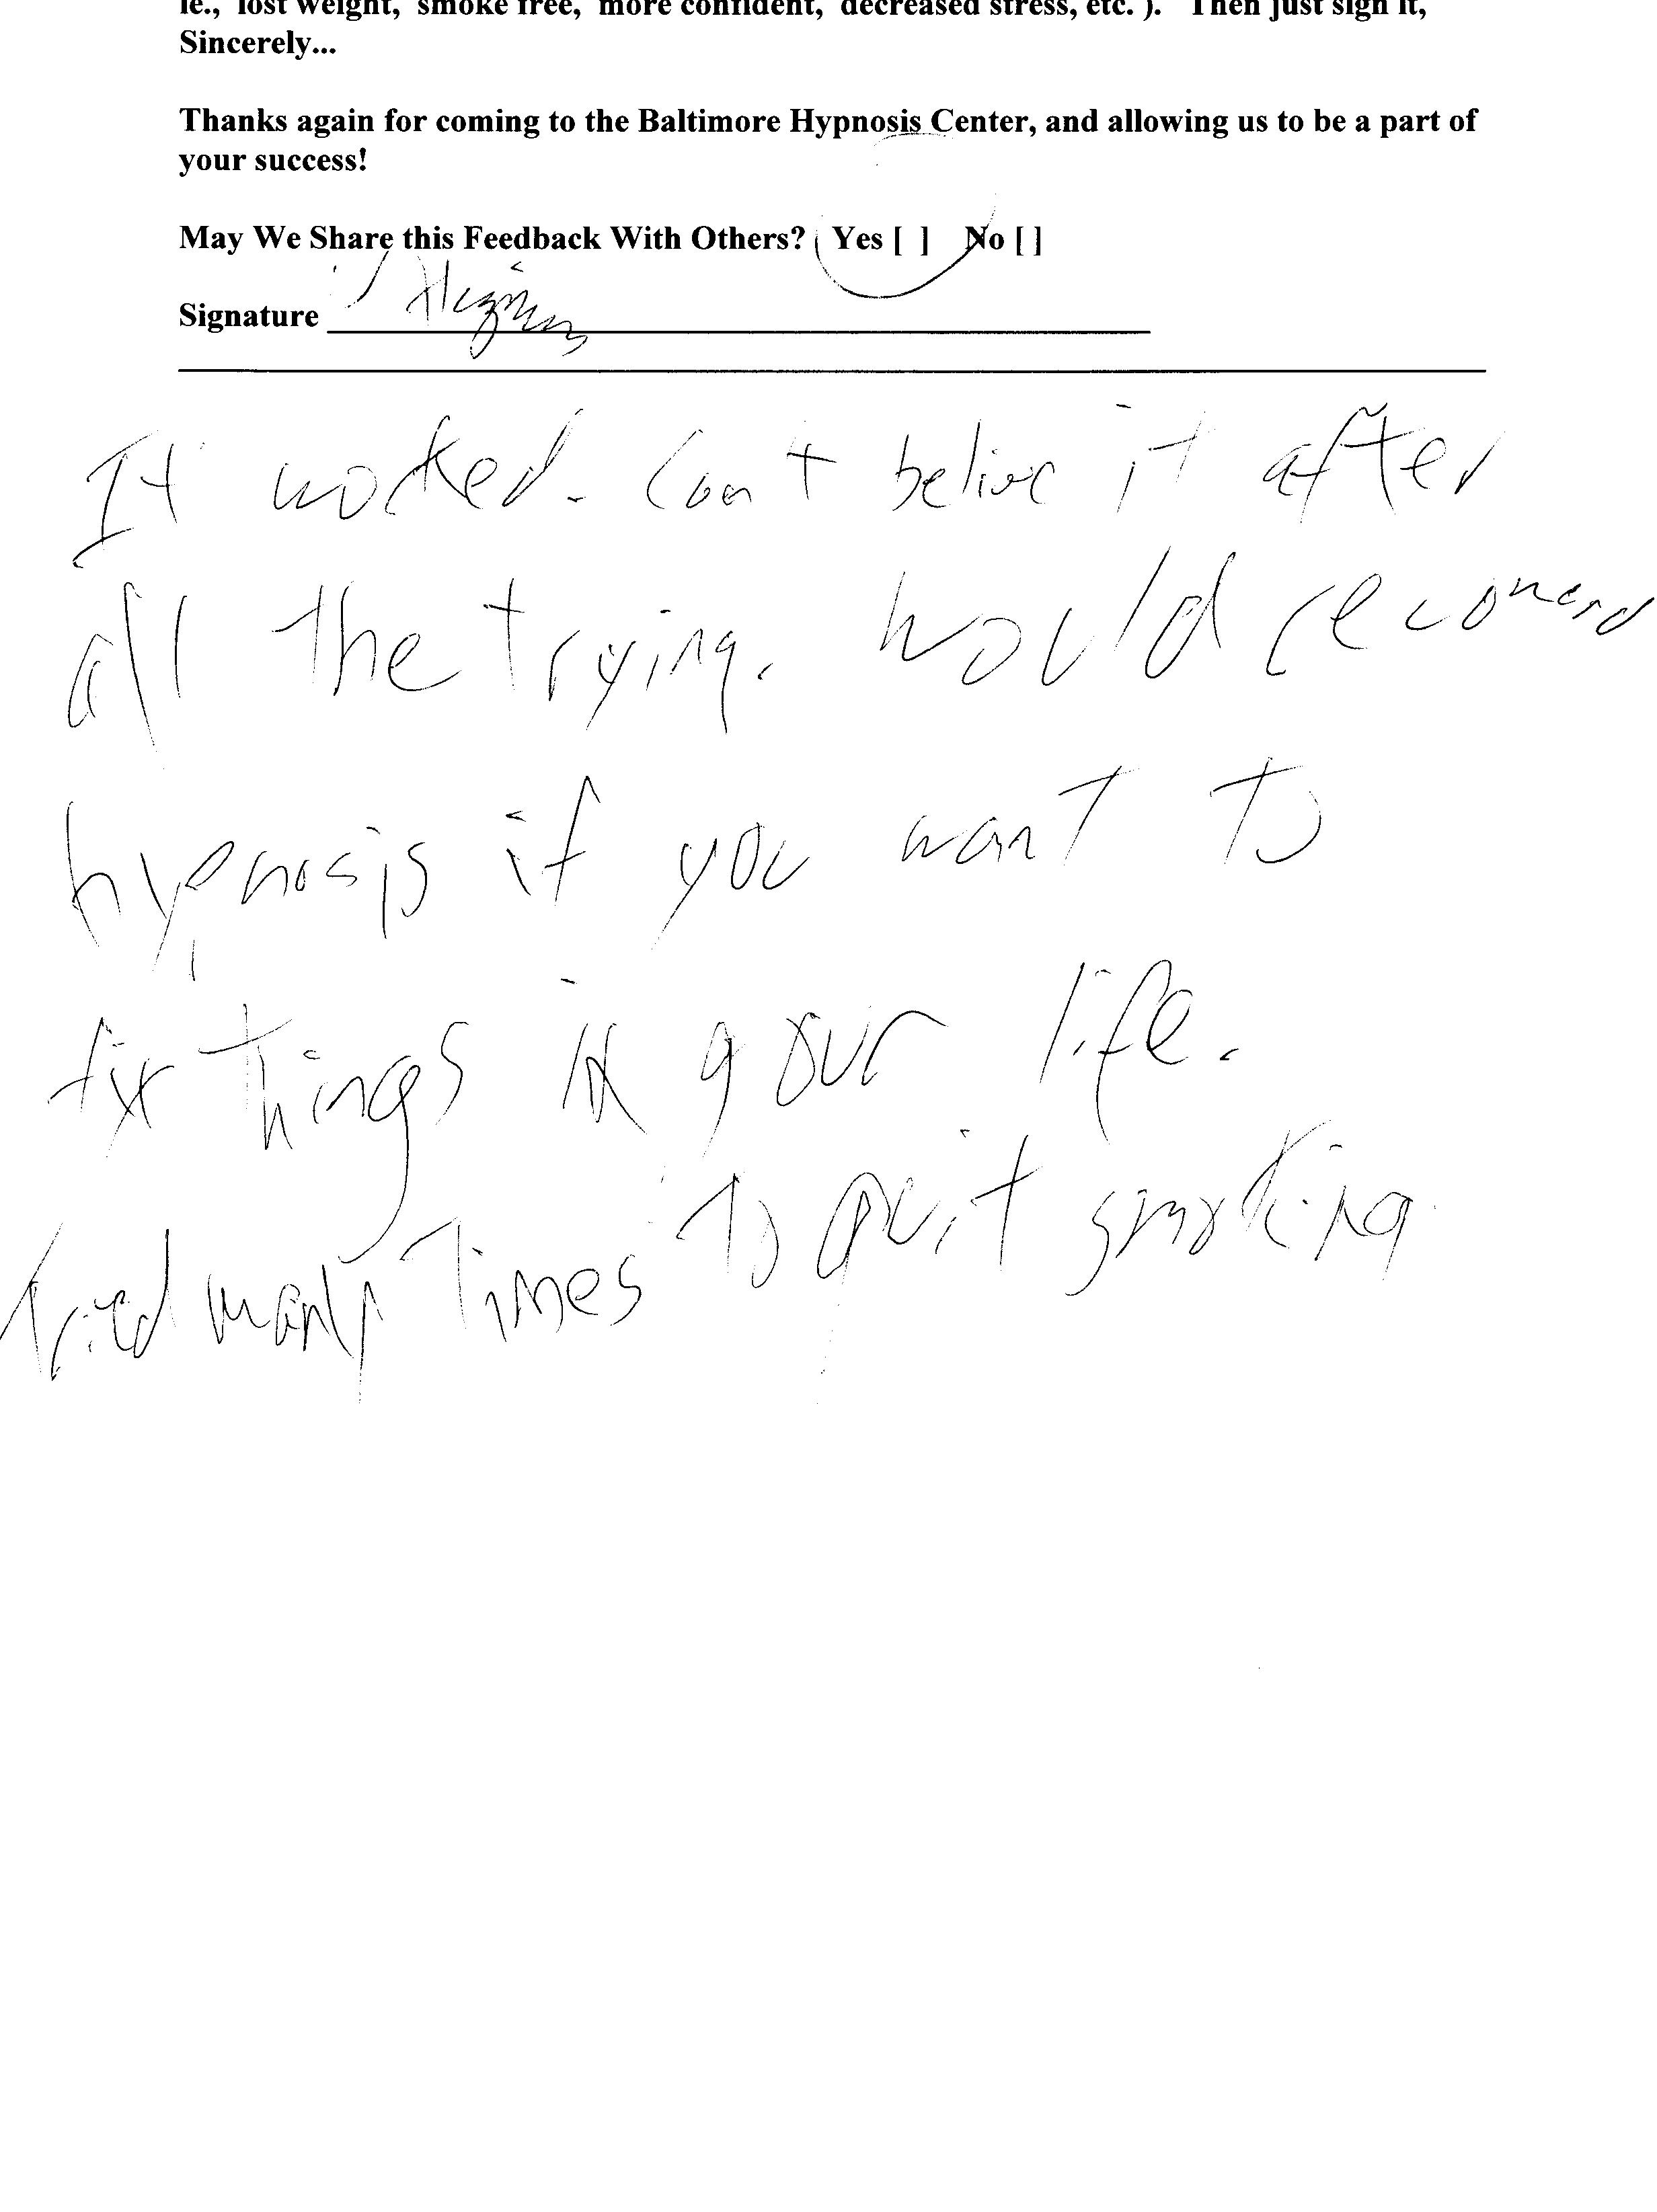 ie., lost weight, smoke free, more confident, decreased stress, etc. ). Then just sign it,
Sincerely...
Thanks again for coming to the Baltimore Hypnosis Center, and allowing us to be a part of
your success!
May We Share this Feedback With Others? Yes [ ] No [ ]
Signature
It worked. Can't belive it after
all the trying. Would recomend
hypnosis if you want to
fix things in your life.
tried many times to quit smoking.